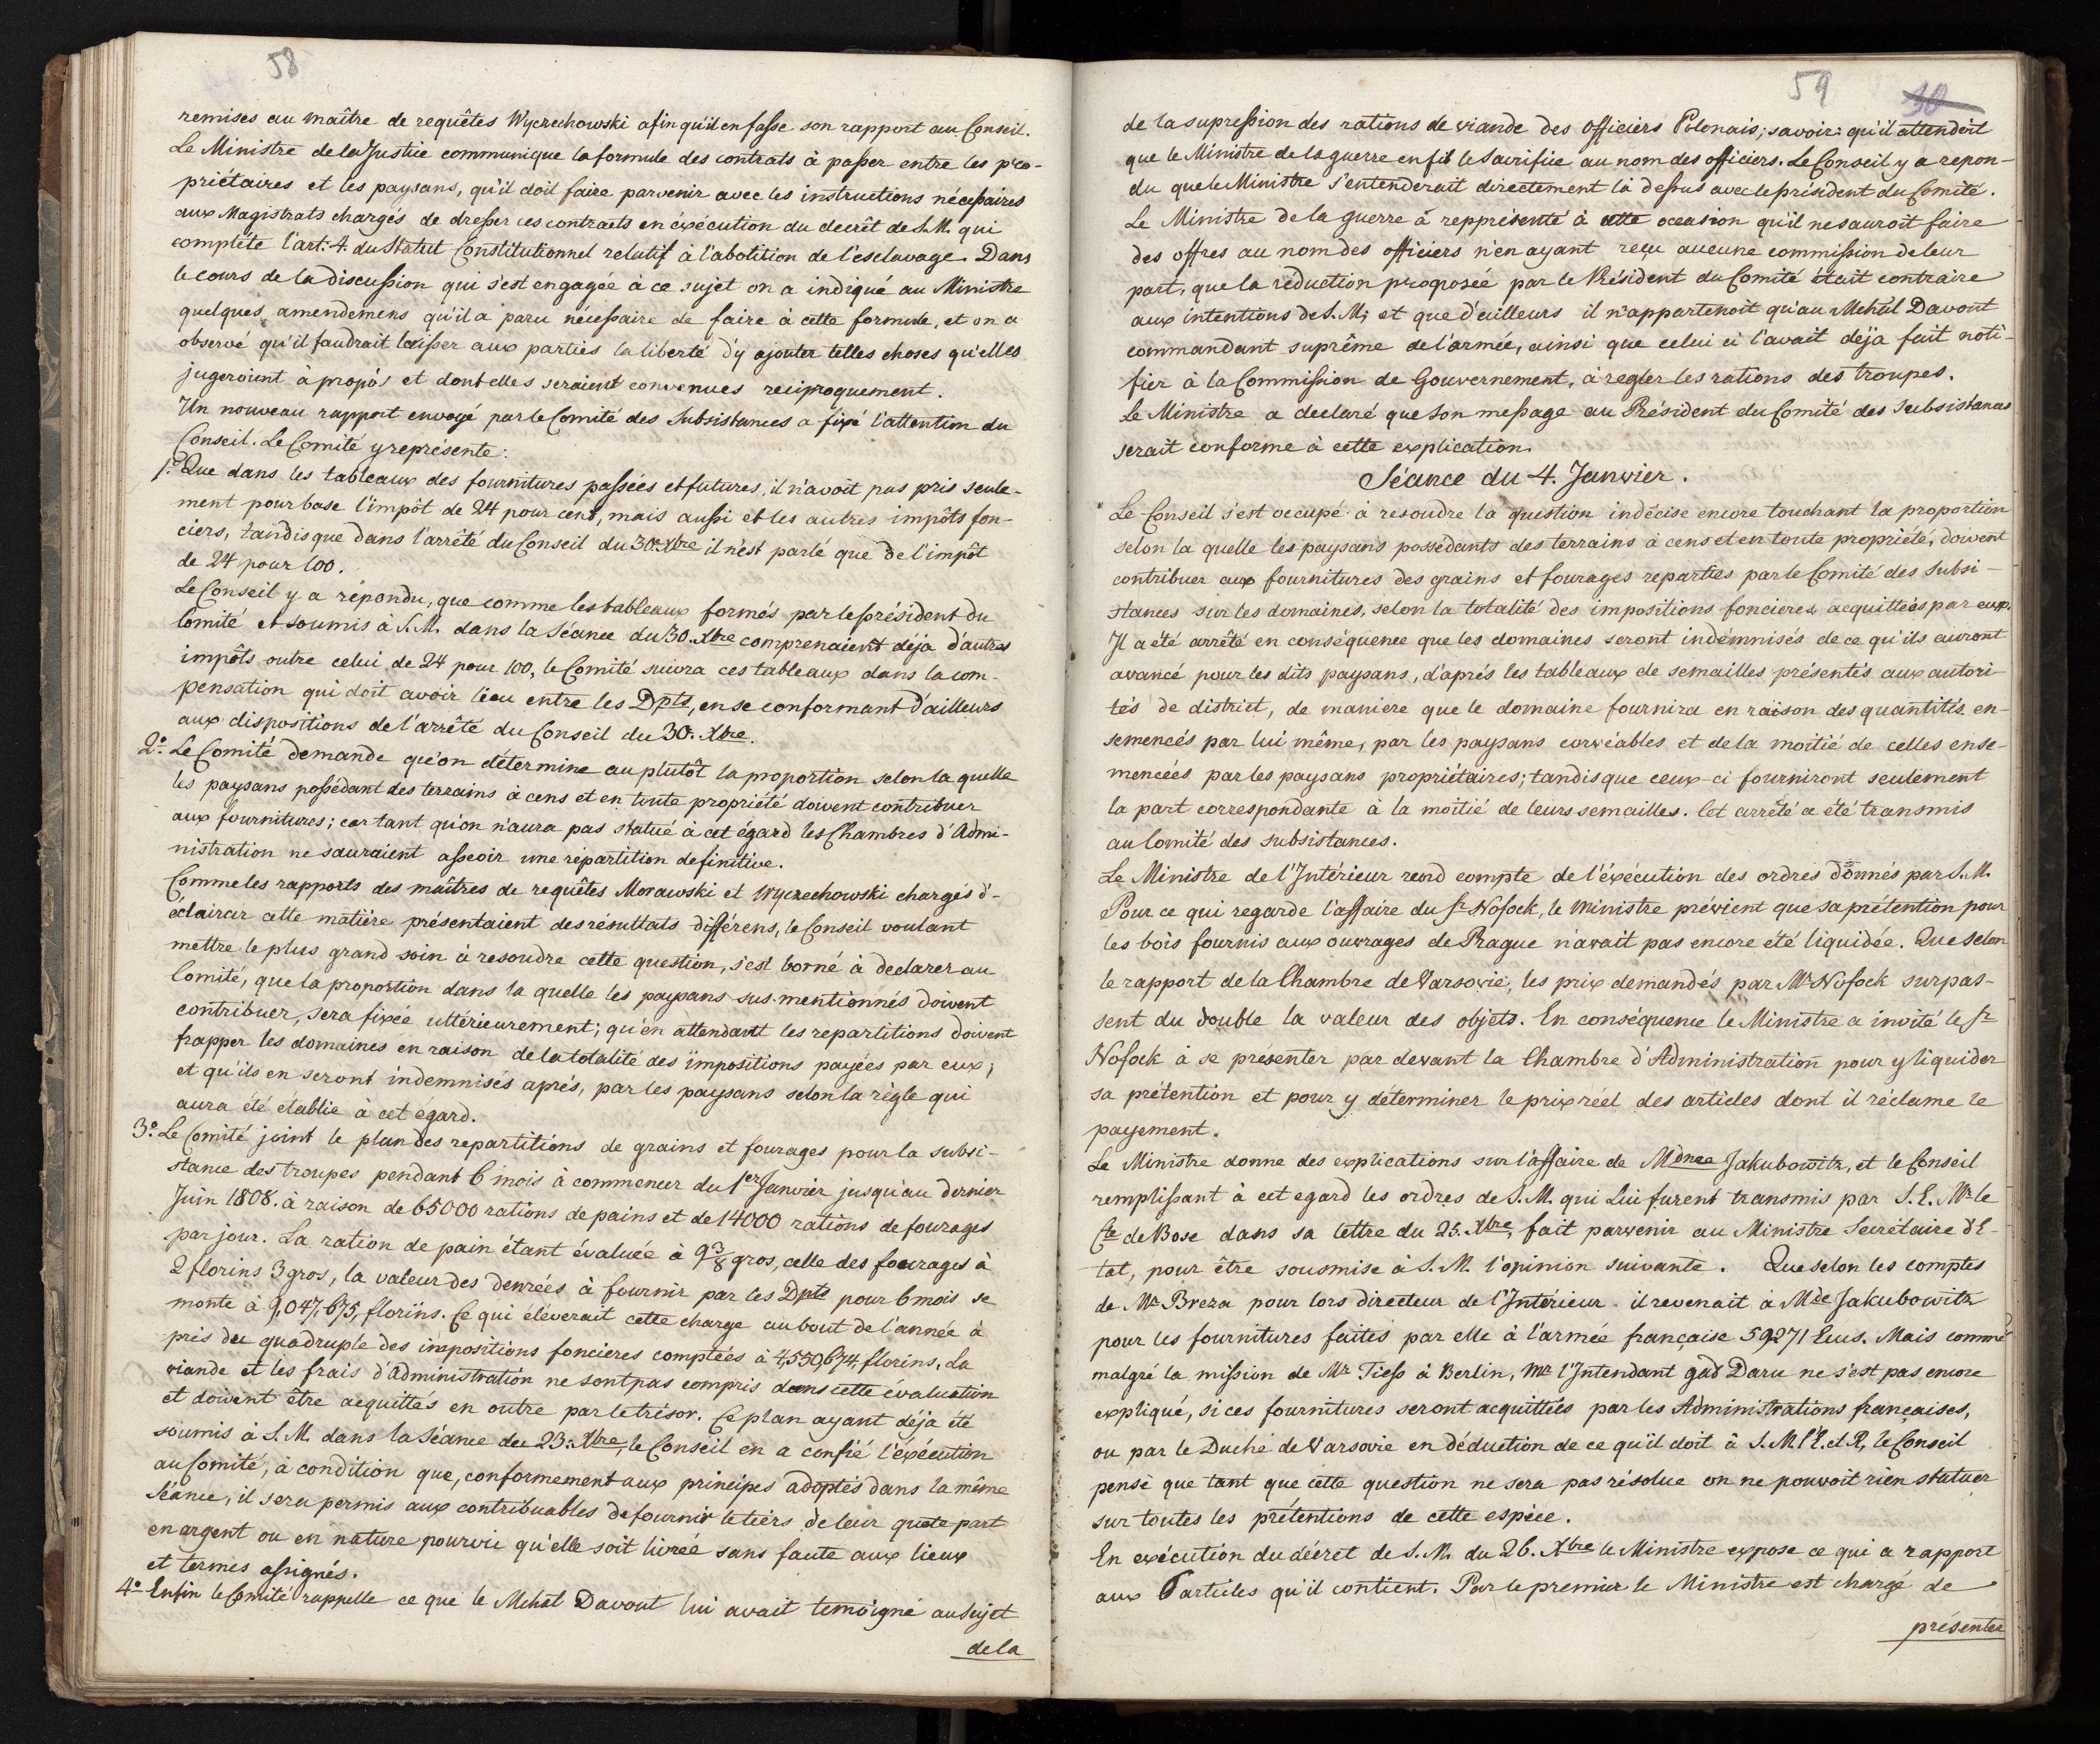 58
remises au maître de requêtes Wyczechowski afin qu'il en fasse son rapport au Conseil.
Le Ministre de la Justice communique la formule des contrats à passer entre les pro-
priétaires et les paysans, qu'il doit faire parvenir avec les instructions nécessaires
aux Magistrats chargés de dresser ces contracts en éxécution du decrêt de S.M. qui
complète l'art: 4. du Statut Constitutionnel relatif à l'abolition de l'esclavage. Dans
le cours de la discussion qui s'est engagée à ce sujet on a indiqué au Ministre
quelques amendemens qu'il a paru nécessaire de faire à cette formule, et on a
observé qu'il faudrait laisser aux parties la liberté d'y ajouter telles choses qu'elles
jugeroient à propos et dont elles seraient convenues reciproquement.
Un nouveau rapport envoyé par le Comité des Subsistances a fixé l'attention du
Conseil. Le Comité y représente:
1º Que dans les tableaux des fournitures passées et futures, il n'avoit pas pris seule-
ment pour base l'impôt de 24 pour cent, mais aussi et les autres impôts fon-
ciers, tandis que dans l'arrêté du Conseil du 30. Xbre il n'est parlé que de l'impôt
de 24 pour 100.
Le Conseil y a répondu, que comme les tableaux formés par le président du
Comité et soumis à S.M. dans la Séance du 30. Xbre comprenaient déja d'autres
impôts outre celui de 24 pour 100, le Comité suivra ces tableaux dans la com-
pensation qui doit avoir lieu entre les Dpts, en se conformant d'ailleurs
aux dispositions de l'arrêté du Conseil du 30. Xbre.
2º Le Comité demande qu'on détermine au plutôt la proportion selon la quelle
les paysans possédant des terrains à cens et en toute propriété doivent contribuer
aux fournitures; car tant qu'on n'aura pas statué à cet égard les Chambres d'Admi-
nistration ne sauraient asseoir une répartition definitive.
Comme les rapports des maîtres de requêtes Morawski et Wyczechowski chargés d'-
éclaircir cette matière présentaient des résultats différens, le Conseil voulant
mettre le plus grand soin à resoudre cette question, s'est borné à declarer au
Comité, que la proportion dans la quelle les paysans sus-mentionnés doivent
contribuer, sera fixée ultérieurement; qu'en attendant les repartitions doivent
frapper les domaines en raison de la totalité des impositions payées par eux;
et qu'ils en seront indemnisés aprés, par les paysans selon la règle qui
aura été établie à cet égard.
3º Le Comité joint le plan des repartitions de grains et fourages pour la subsi-
stance des troupes pendant 6 mois à commencer du 1er Janvier jusqu'au dernier
Juin 1808. à raison de 65000 rations de pains et de 14000 rations de fourages
par jour. La ration de pain étant évaluée à 9 3/8 gros, celle des fourages à
2 florins 3 gros, la valeur des denrées à fournir par les Dpts pour 6 mois se
monte à 9,047,675, florins. Ce qui éléverait cette charge au bout de l'année à
près du quadruple des impositions foncieres comptées à 4,550,674 florins. La
viande et les frais d'Administration ne sont pas compris dans cette évaluation
et doivent être acquittés en outre par le trésor. Ce plan ayant déja été
soumis à S.M. dans la Séance du 23. Xbre, le Conseil en a confié l'exécution
au Comité, à condition que, conformement aux principes adoptés dans la même
Séance, il sera permis aux contribuables de fournir le tiers de leur quote part
en argent ou en nature pourvu qu'elle soit livrée sans faute aux lieux
et termes assignés.
4º Enfin le Comité rappelle ce que le Mchal Davout lui avait temoigné au Sujet
de la
59
30
de la supression des rations de viande des officiers Polonais; savoir: qu'il attendoit
que le Ministre de la guerre en fit le Sacrifice au nom des officiers. Le Conseil y a repon-
du que le Ministre s'entenderait directement là dessus avec le président du Comité.
Le Ministre de la guerre a représenté à cette occasion qu'il ne sauroit faire
des offres au nom des officiers n'en ayant reçu aucune commission de leur
part, que la réduction proposée par le Président du Comité était contraire
aux intentions de S.M; et que d'ailleurs il n'appartenoit qu'au Mchal Davout
commandant suprême de l'armée, ainsi que celui ci l'avait déja fait noti-
fier à la Commission de Gouvernement, à regler les rations des troupes.
Le Ministre a declaré que son message au Président du Comité des Subsistances
serait conforme à cette explication.
Séance du 4. Janvier.
Le Conseil s'est occupé à resoudre la question indécise encore touchant la proportion
selon la quelle les paysans possédants des terrains à cens et en toute propriété, doivent
contribuer aux fournitures des grains et fourages reparties par le Comité des Subsi-
stances sur les domaines, selon la totalité des impositions foncieres acquittées par eux.
Il a été arrêté en conséquence que les domaines seront indémnisés de ce qu'ils auront
avancé pour les dits paysans, d'aprés les tableaux de semailles présentés aux autori-
tés de district, de maniere que le domaine fournira en raison des quantités en-
semencés par lui même, par les paysans corvéables et de la moitié de celles ense-
mencées par les paysans propriétaires; tandis que ceux-ci fourniront seulement
la part correspondante à la moitié de leurs semailles. Cet arrêté a été transmis
au Comité des subsistances.
Le Ministre de l'Intérieur rend compte de l'éxécution des ordres donnés par S.M.
Pour ce qui regarde l'affaire du Sr Nosock, le Ministre prévient que sa prétention pour
les bois fournis aux ouvrages de Prague n'avait pas encore été liquidée. Que selon
le rapport de la Chambre de Varsovie, les prix demandés par Mr Nosock surpas-
sent du double la valeur des objets. En conséquence le Ministre a invité le Sr
Nosock à se présenter par devant la Chambre d'Administration pour y liquider
sa prétention et pour y déterminer le prix réel des articles dont il réclame le
payement.
Le Ministre donne des explications sur l'affaire de Mdnee Jakubowitz, et le Conseil
remplissant à cet egard les ordres de S.M. qui Lui furent transmis par S.E. Mr le
Cte de Bose dans sa lettre du 25. Xbre, fait parvenir au Ministre Secrétaire d'E-
tat, pour être sousmise à S.M. l'opinion suivante. Que selon les comptes
de Mr Breza pour lors directeur de l'Intérieur il revenait à Mde Jakubowitz
pour les fournitures faites par elle à l'armée française 59271 Ecus. Mais comme
malgré la mission de Mr Tiess à Berlin, Mr l'Intendant gad Daru ne s'est pas encore
expliqué, si ces fournitures seront acquittées par les Administrations françaises,
ou par le Duché de Varsovie en déduction de ce qu'il doit à S.M.l'E. et R, le Conseil
pense que tant que cette question ne sera pas résolue on ne pouvoit rien statuer
sur toutes les prétentions de cette espèce.
En exécution du décret de S.M. du 26. Xbre le Ministre expose ce qui a rapport
aux 6 articles qu'il contient. Par le premier le Ministre est chargé de
présenter